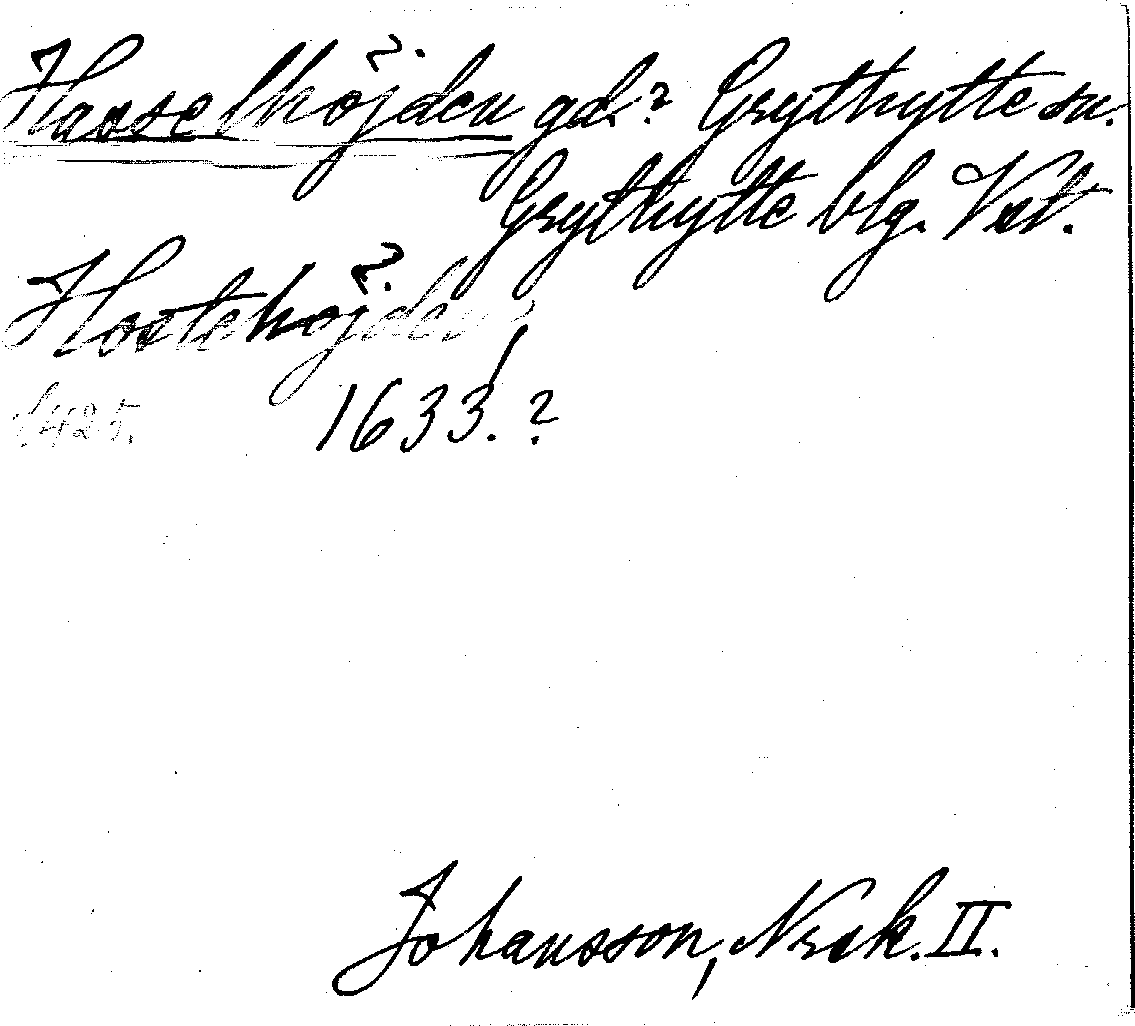 Hasselhöjden gd.? Grythytte sn.
Grythytte blg. Vstm.
Hostehöjden,
1425. 1633.?
Johansson, Nrck. II.